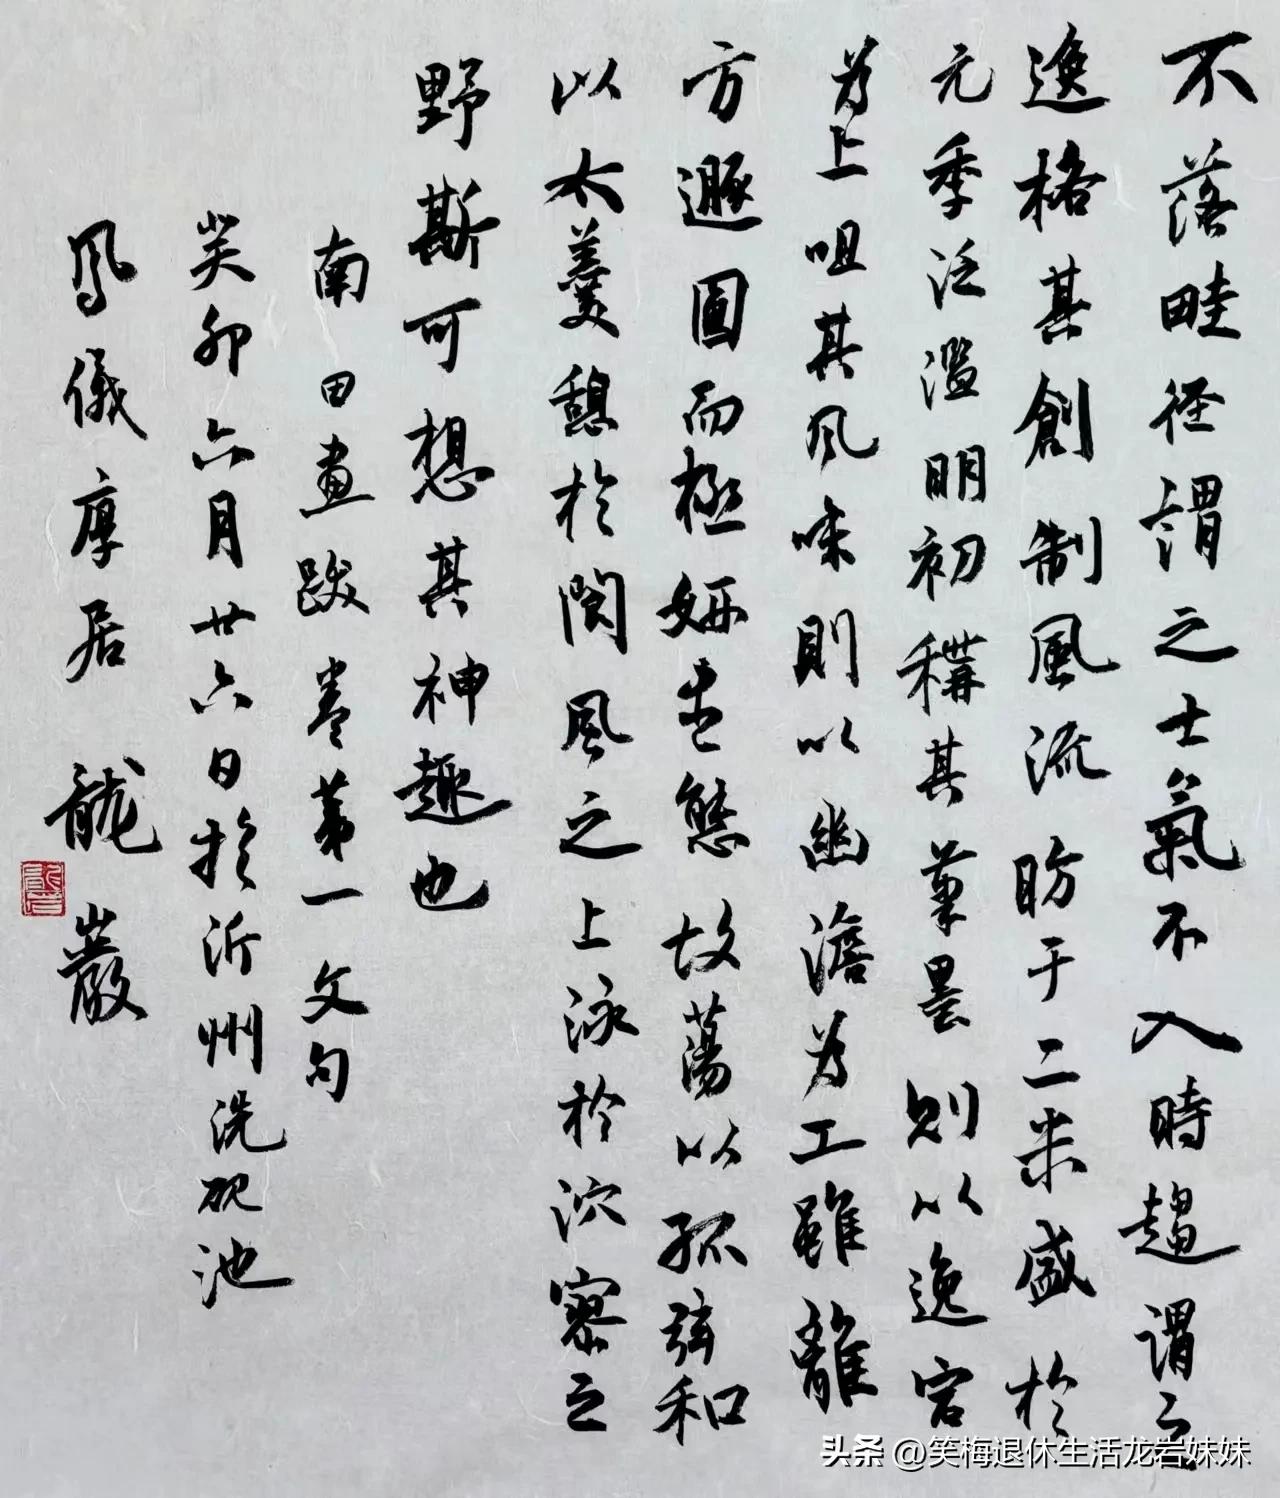 不落畦径謂之士氣不入時趨謂之
逸格其創制風流昉于二米盛於
元季泛濫明初稱其筆墨則以逸宕
為上咀其風味則以幽澹為工雖離
方遯圓而極妍盡態故蕩以孤弦和
以太羹憩於閬風之上泳於泬寥之
野斯可想其神趣也
南田畫跋卷第一文句
癸卯六月廿六日於沂州洗砚池
鳳儀厚居 龍巖
头条 @笑梅退休生活龙岩妹妹